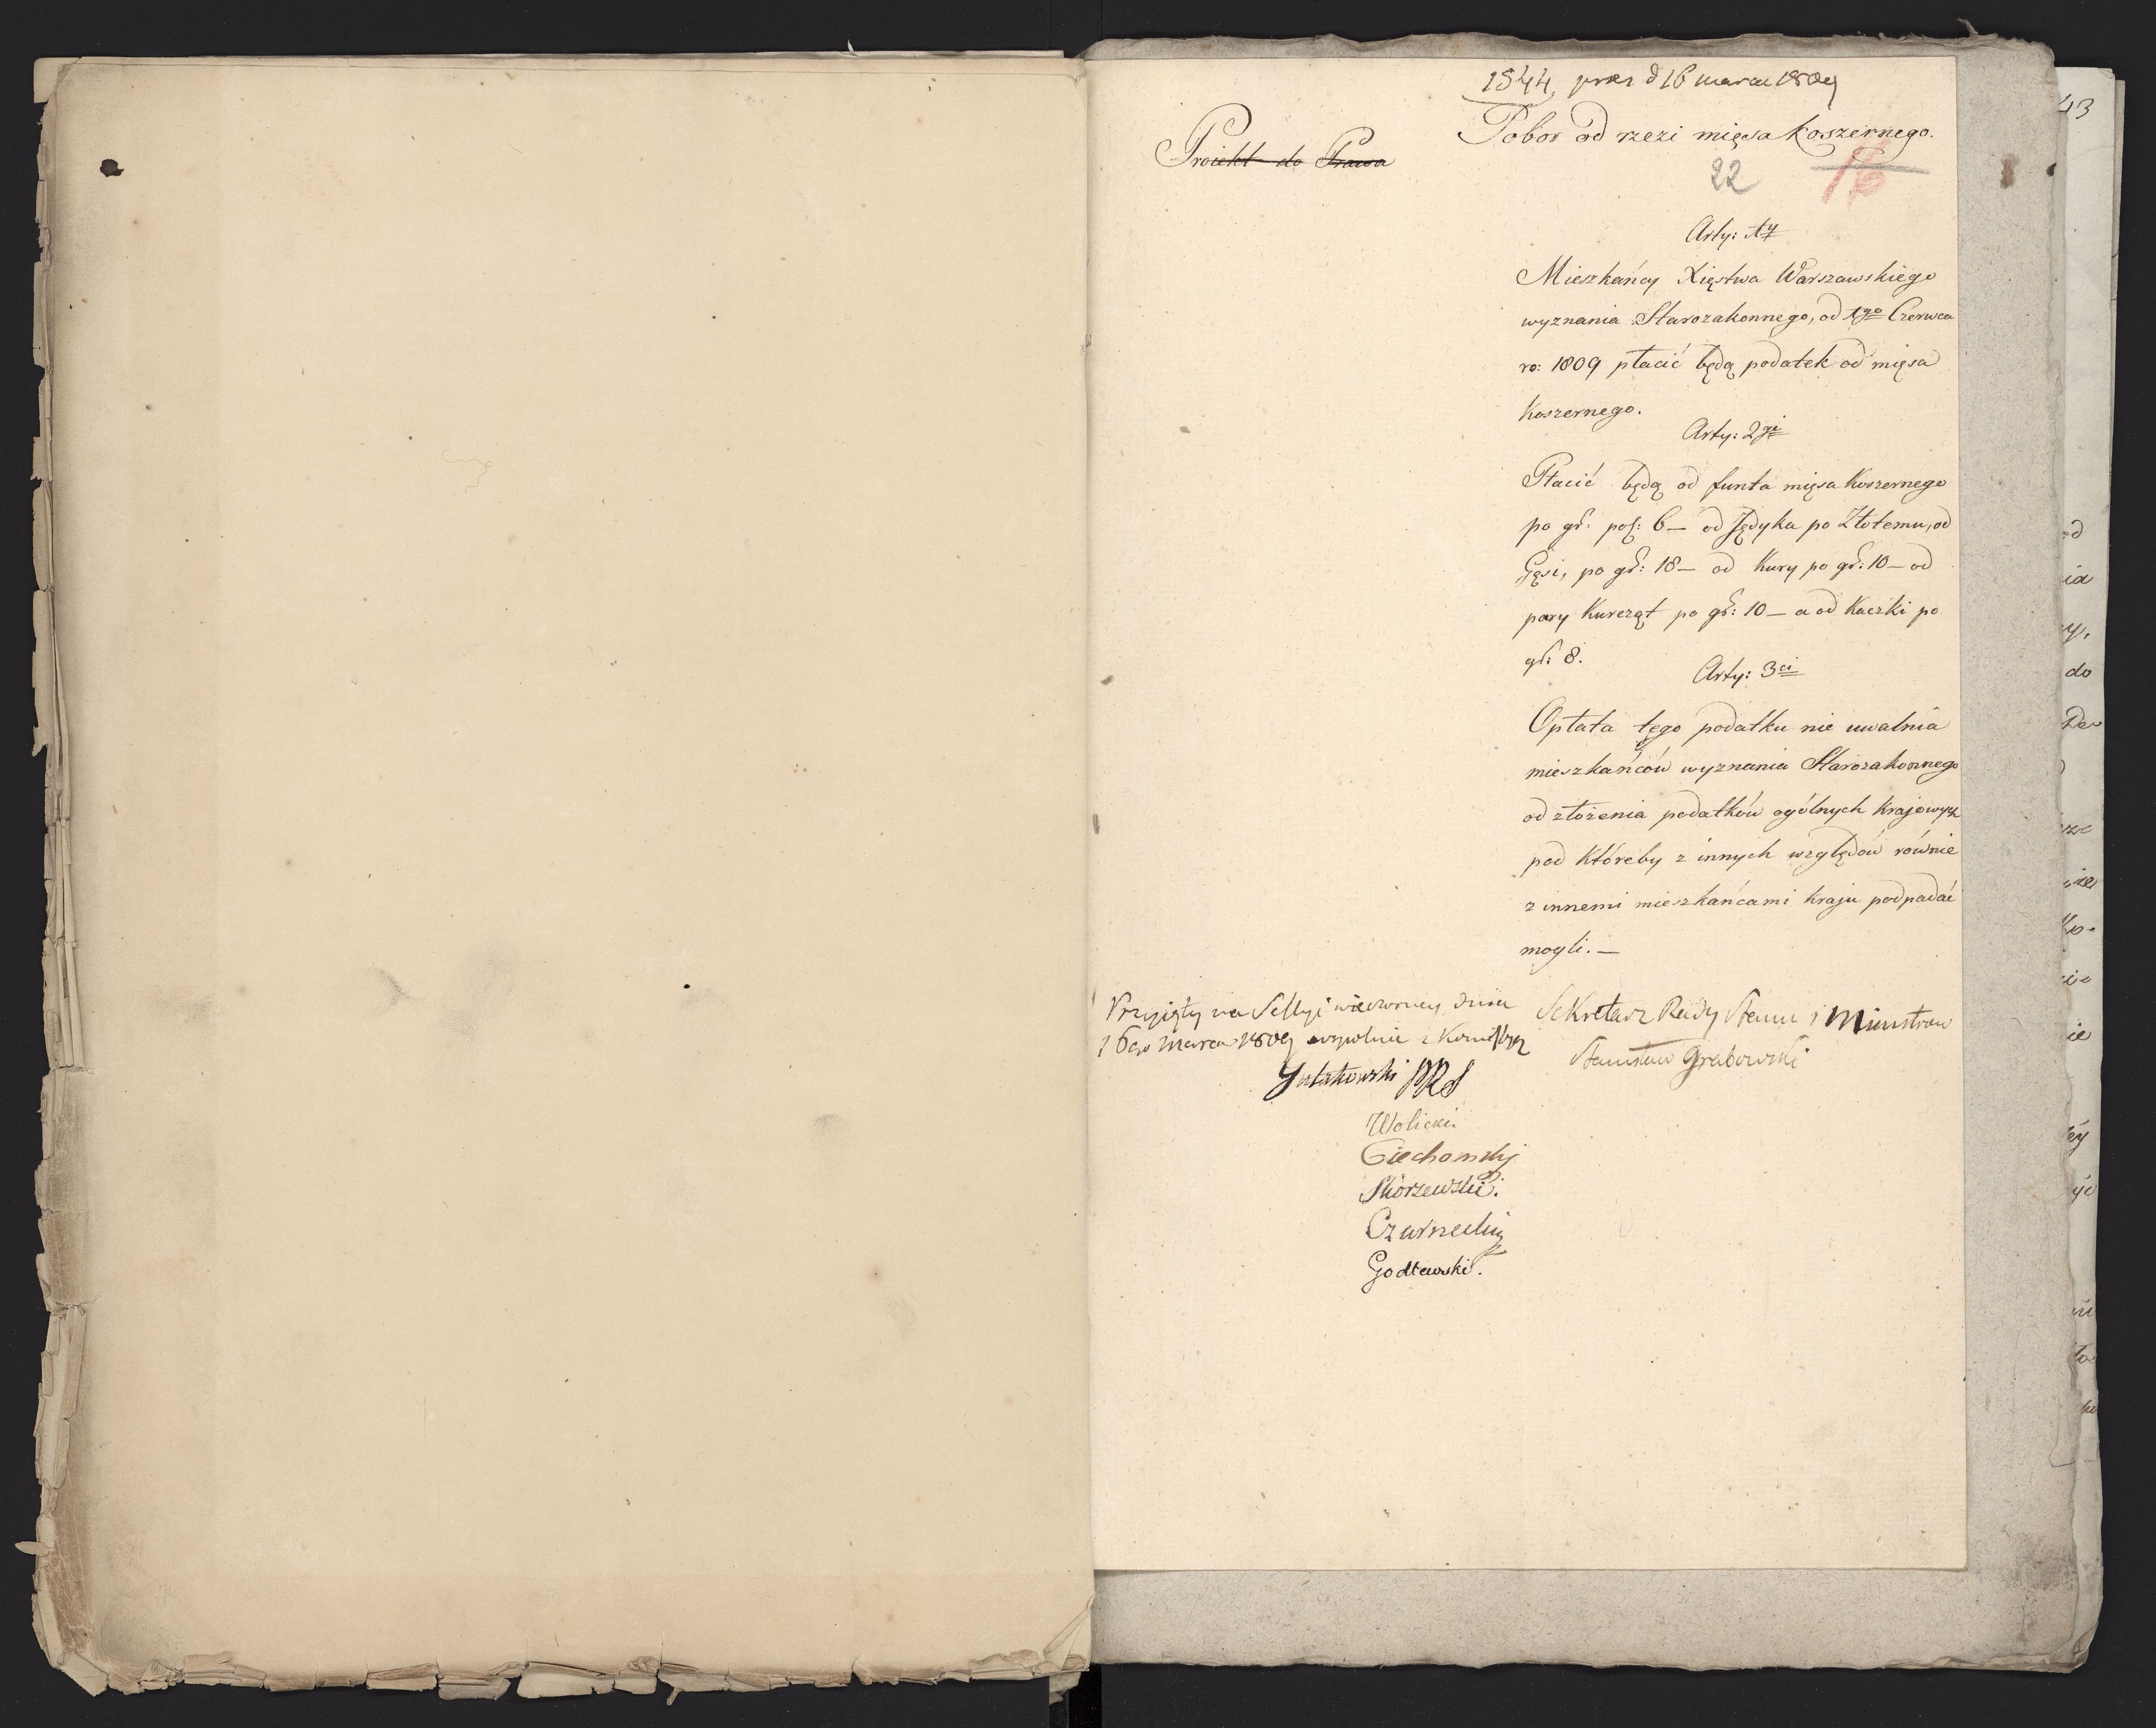 1544, prez d 16 marca 1809
Pobor od rzezi mięsa koszernego.
Proiekt do Prawa
22 16
Arty: 1y
Mieszkańcy Xięstwa Warszawskiego
wyznania Starozakonnego, od 1go Czerwca
ro: 1809 płacić będą podatek od mięsa
Koszernego.
Arty: 2gi
Płacić będą od funta mięsa Koszernego
po gr: pol: 6 — od Jędyka po Złotemu, od
Gęsi, po gr: 18 — od Kury po gr: 10 — od
pary Kurcząt po gr: 10 — a od Kaczki po
gr: 8.
Arty: 3ci
Opłata tego podatku nie uwalnia
mieszkańców wyznania Starozakonnego
od złożenia podatków ogólnych Krajowych
pod Któreby z innych względów równie
z innemi mieszkańcami Kraju podpadać
mogli. —
Przyięty na Sessyi wieczorney dnia
16go Marca 1809 wspolnie z Komissyą
Sekretarz Rady Stanu i Ministrow
Stanisław Grabowski
PRS
Wolicki
Ciechomsky
Skórzewski.
Czarnecki
Godlewski.
43
do